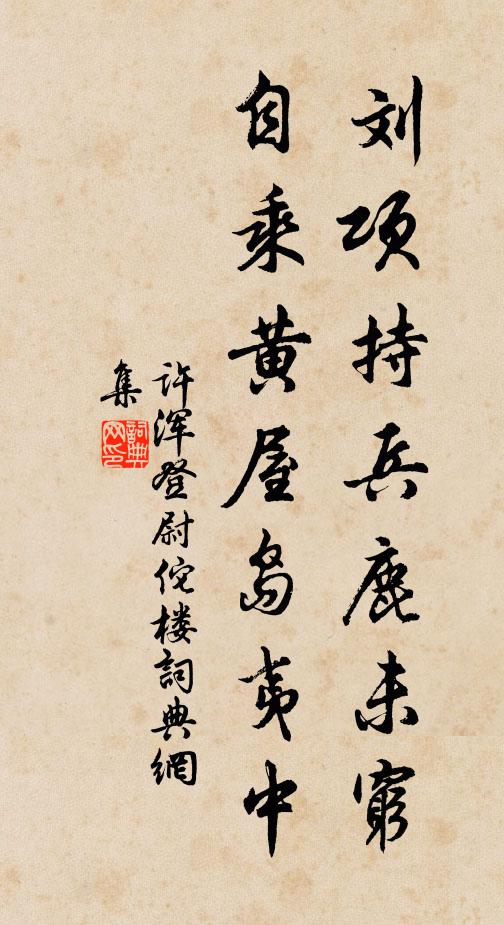 刘项持兵鹿未窮
自乘黄屋岛夷中
许浑登尉佗楼詞典網
集
詞典
网印